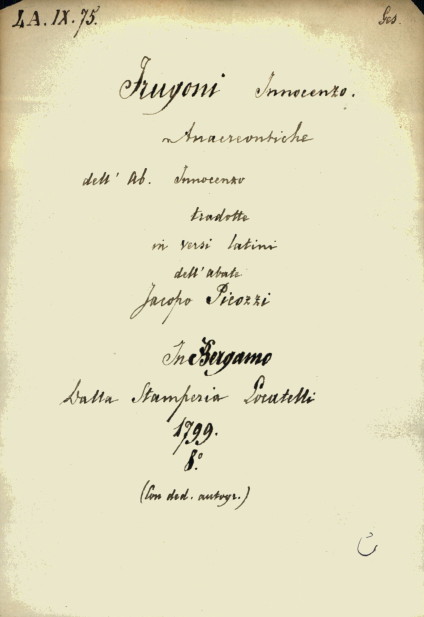 LA. IX. 75.
Ges.
Frugoni Innocenzo.
Anacreontiche
dell' Ab. Innocenzo
tradotte
in versi latini
dell' abate
Jacopo Picozzi
In Bergamo
Dalla Stamperia Locatelli
1799.
8.º
(Con ded. autogr.)